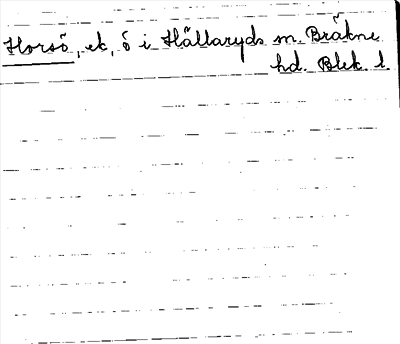 Horsö, ek, ö i Hällaryds sn. Bräkne
hd. Blek. l.